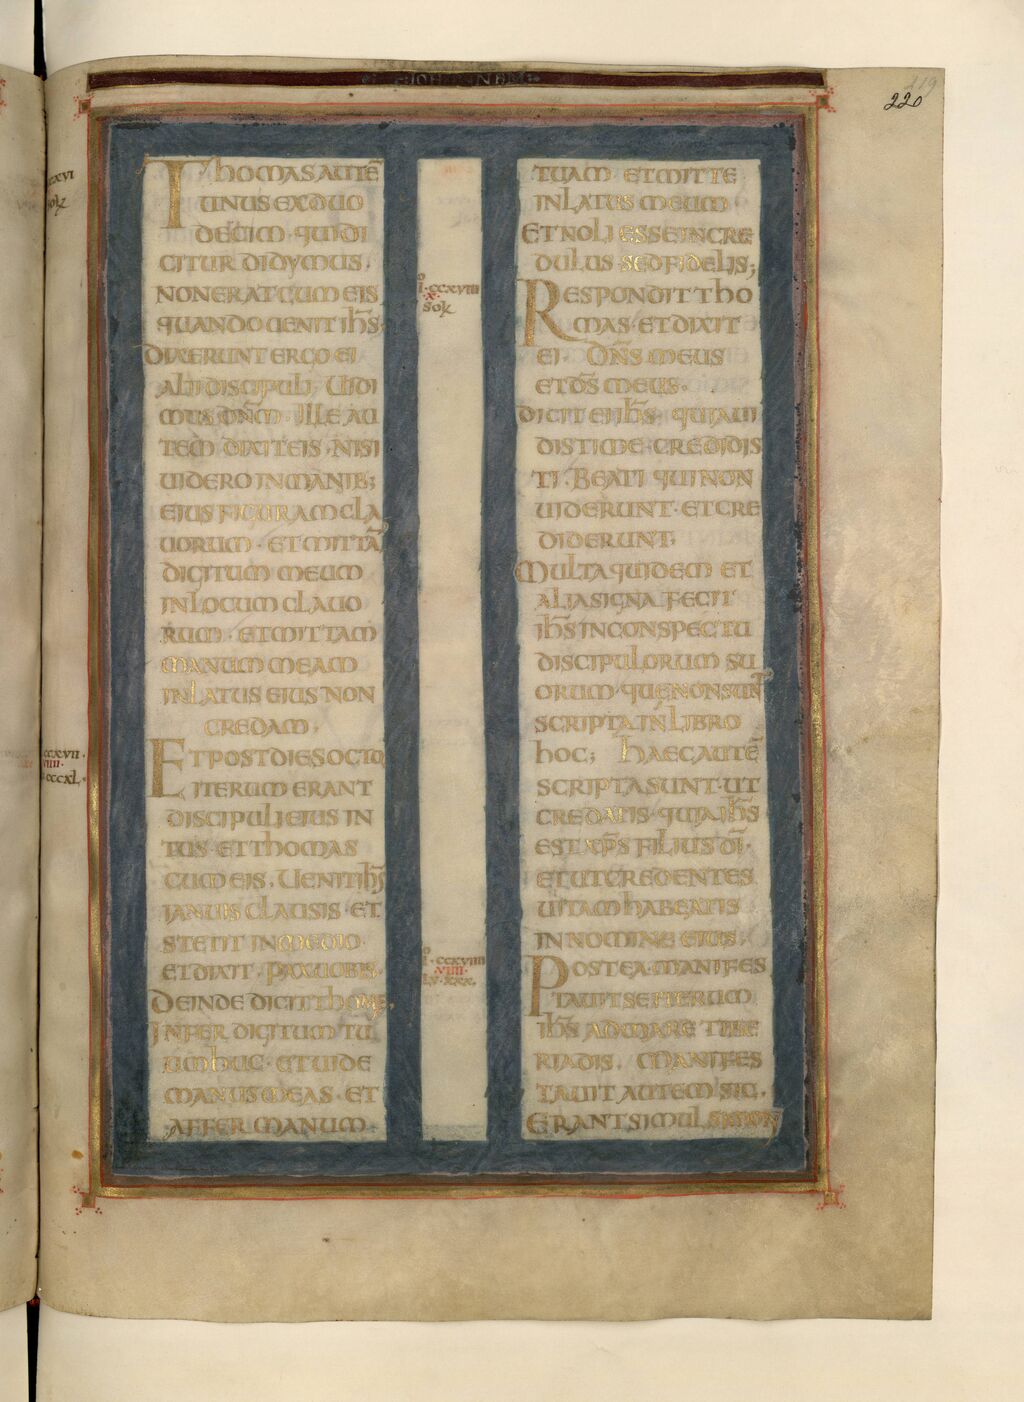 IOHANNEM
220
THOMAS AUTE̅
UNUS EX DUO
DECIM · QUI DI
CITUR DIDYMUS ·
NON ERAT CUM EIS
QUANDO UENIT IH̅S
DIXERUNT ERGO EI
ALII DISCIPULI · UIDI
MUS DN̅M · ILLE AU
TEM DIXIT EIS · NISI
UIDERO IN MANIB;
EIUS FIGURAM CLA
UORUM · ET MITTA̅
DIGITUM MEUM
IN LOCUM CLAUO
RUM · ET MITTAM
MANUM MEAM
IN LATUS EIUS NON
CREDAM ·
ET POST DIES OCTO
ITERUM ERANT
DISCIPULI EIUS IN
TUS · ET THOMAS
CUM EIS · UENIT IH̅S
IANUIS CLAUSIS · ET
STETIT IN MEDIO ·
ET DIXIT · PAX UOBIS ·
DEINDE DICIT THOME,
INFER DIGITUM TU
UM HUC · ET UIDE
MANUS MEAS · ET
AFFER MANUM
CCXVIII
X
CCXVIIII
VIIII
TUAM · ET MITTE
IN LATUS MEUM ·
ET NOLI ESSE INCRE
DULUS · SED FIDELIS;
RESPONDIT THO
MAS · ET DIXIT
EI · DN̅S MEUS
ET DS̅ MEUS ·
DICIT EI IH̅S · QUIA UI
DISTI ME · CREDIDIS
TI · BEATI QUI NON
UIDERUNT · ET CRE
DIDERUNT;
MULTA QUIDEM ET
ALIA SIGNA FECIT
IH̅S IN CONSPECTU
DISCIPULORUM SU
ORUM · QUE NON SUN̅T
SCRIPTA IN LIBRO
HOC; HAEC AUTE̅
SCRIPTA SUNT · UT
CREDATIS · QUIA IH̅S
EST XP̅S FILIUS DI̅ ·
ET UT CREDENTES
UITAM HABEATIS
IN NOMINE EIUS ·
POSTEA · MANIFES
TAUIT SE ITERUM
IH̅S AD MARE TIBE
RIADIS · MANIFES
TAUIT AUTEM SIC ·
ERANT SIMUL SIMON